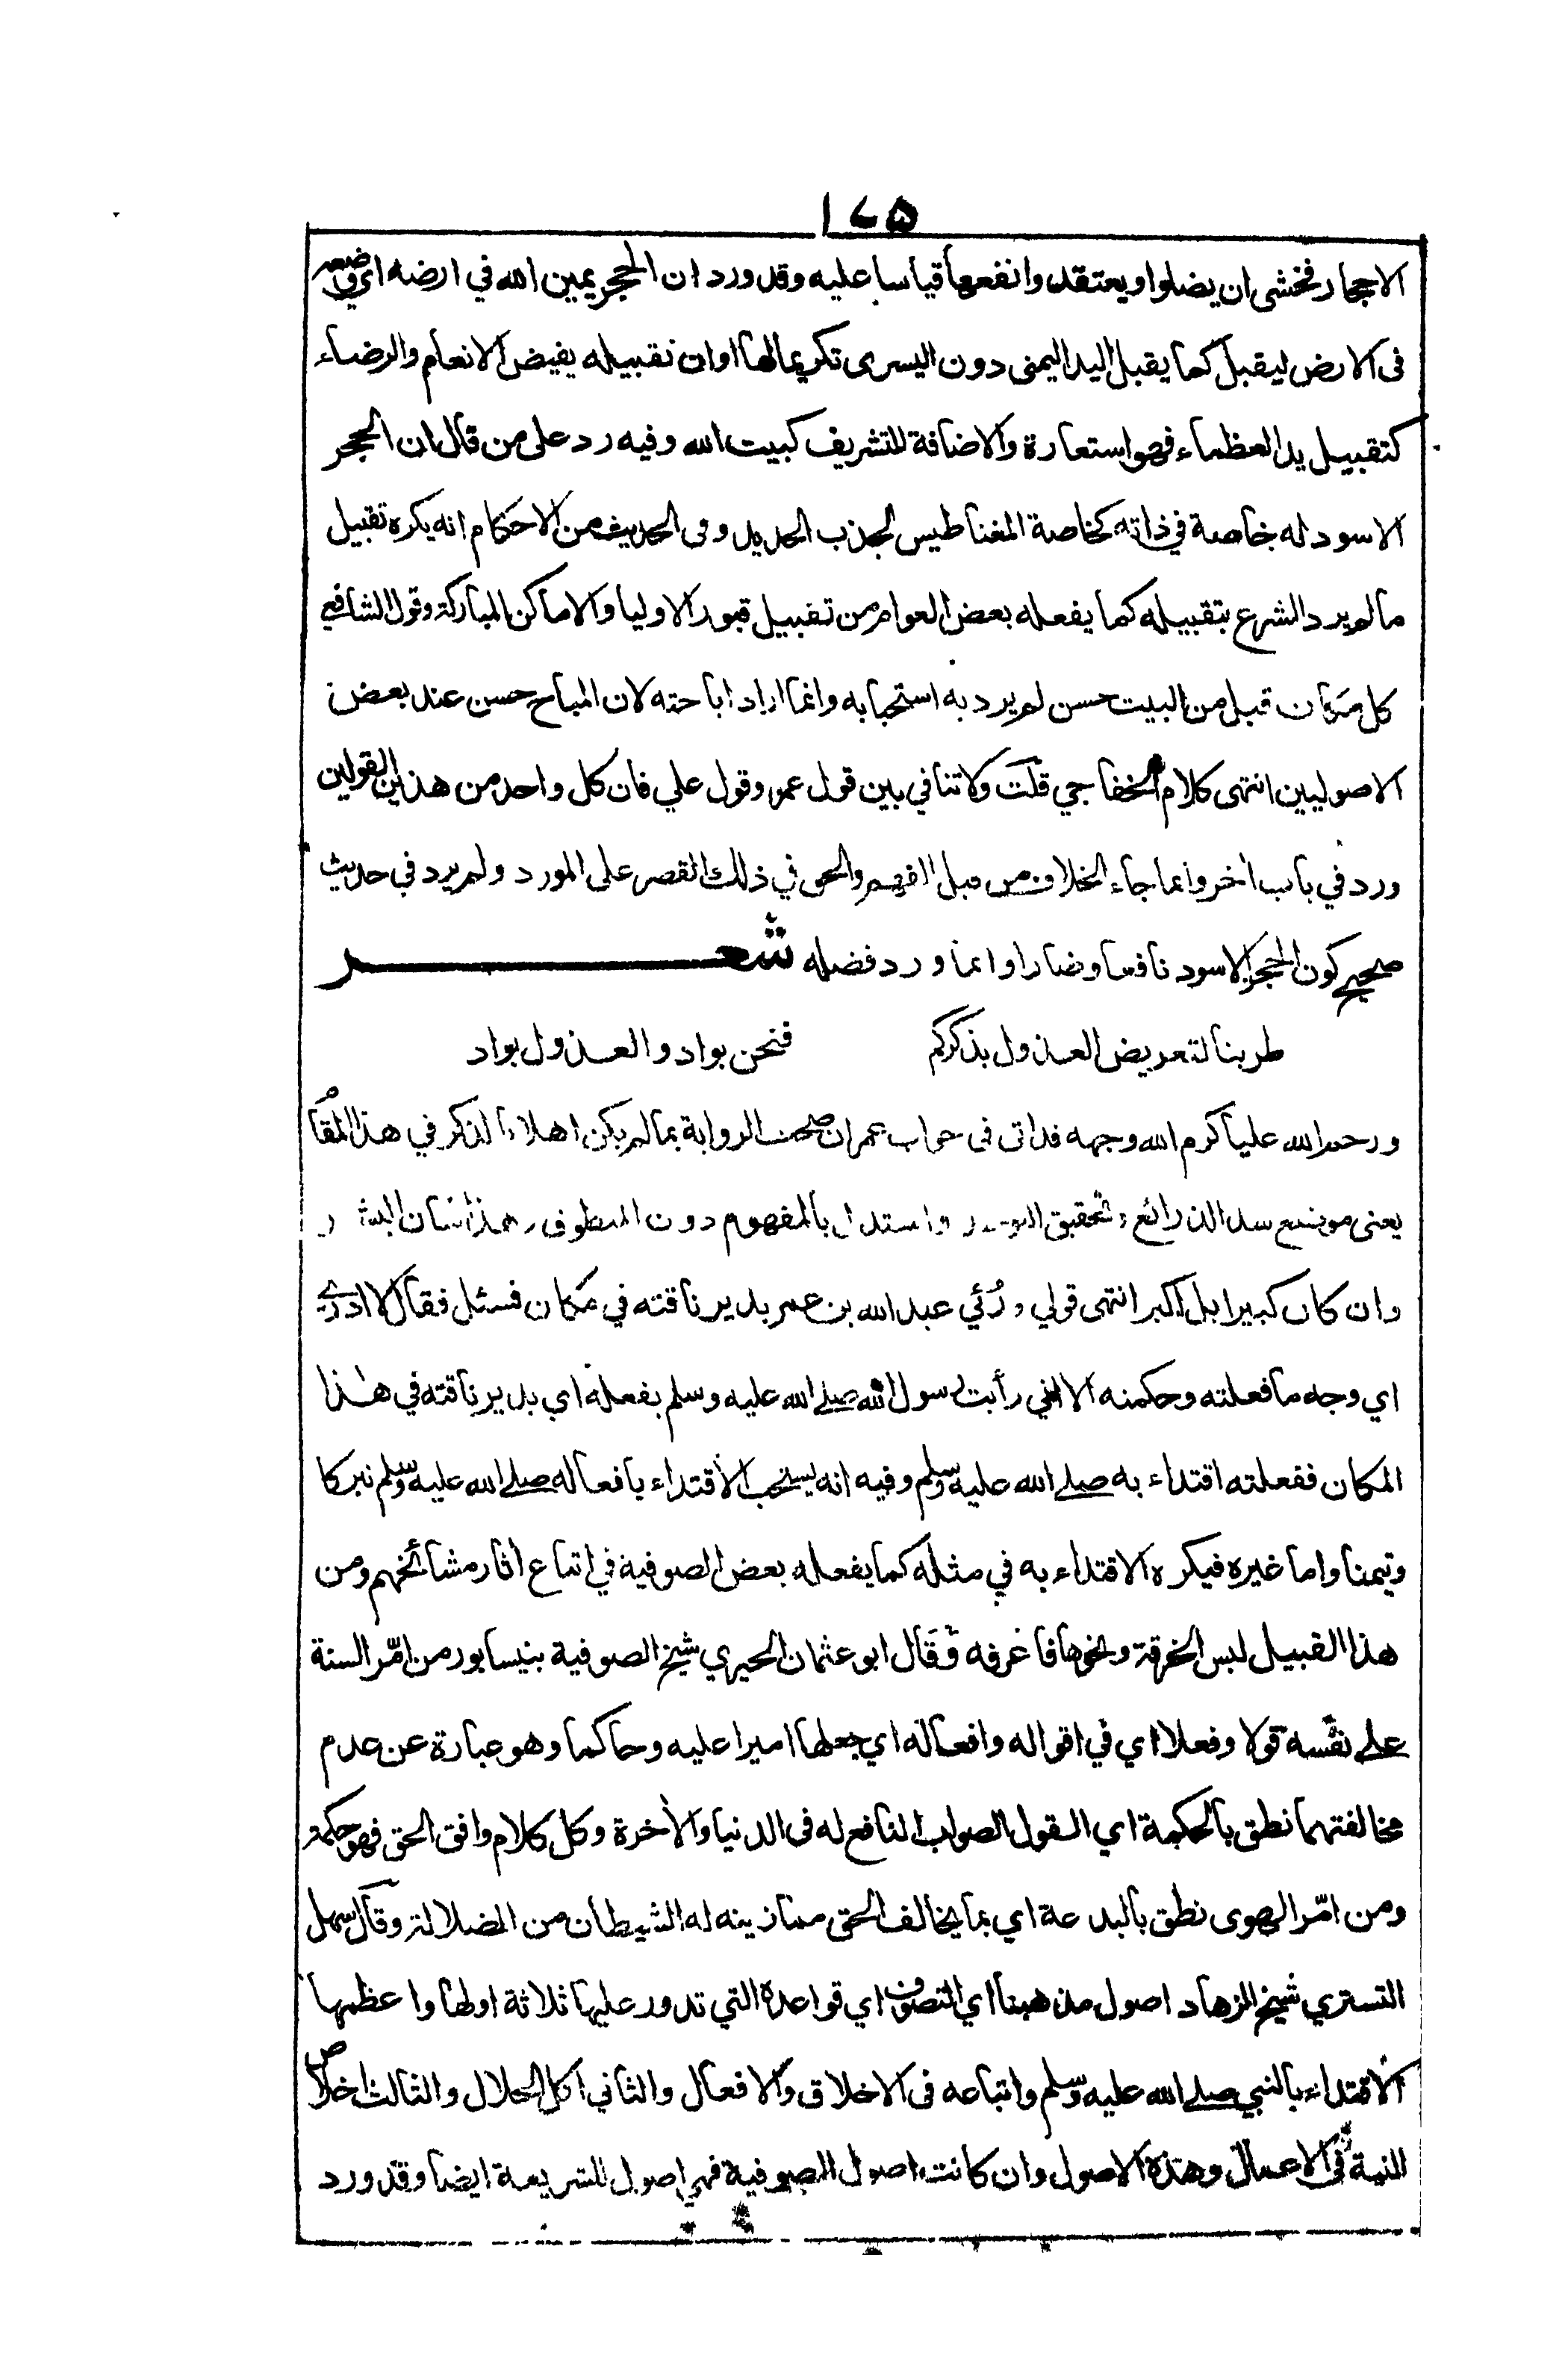 ١٧٥
الاحجار فخشى ان يضلوا ويعتقدوا نفعها قياسا عليه وقد ورد ان الحجر يمين الله في ارضه اي وضعه
فى الارض ليقبل كما يقبل اليد اليمنى دون اليسرى تكريما لها اوان تقبيله يفيض الانعام والرضاء
كتقبيل يد العظماء فهو استعارة والاضافة للتشريف كبيت الله وفيه رد على من قال ان الحجر
الاسود له خاصة في ذاته كخاصة المغناطيس لجذب الحديد وفى الحديث من الاحكام انه يكره تقبيل
ما لم يرد الشرع بتقبيله كما يفعله بعض العوام من تقبيل قبور الاوليا والاماكن المباركة وقول الشافعي
كل مكان قبل من البيت حسن لم يرد به استحبابه وانما اراد اباحته لان المباح حسن عند بعض
الاصوليين انتهى كلام الخفاجي قلت ولا تنافي بين قول عمر وقول علي فان كل واحد من هذين القولين
ورد في باب اخر وانما جاء الخلاف من قبل الفهم والحق في ذلك القصر على المورد ولم يرد في حديث
صحيح كون الحجر الاسود نافعا وضارا وانما ورد فضله شعر
طربنا لتعريض العذول بذكركم فنحن بواد والعذول بواد
ورحم الله عليا كرم الله وجهه فداتى فى جواب عمر ان صحت الرواية بما لم يكن اهلا الذكر في هذا المقام
يعنى موضع سد الذرائع وتحقيق واستدل بالمفهوم دون المنطوق وهذا شان البشر
وان كان كبيرا بل اكبر انتهى قولي ورُئي عبد الله بن عمر يدير ناقته في مكان فسئل فقال لا ادري
اي وجه ما فعلته وحكمته الا اني رأيت رسول الله صلى الله عليه وسلم يفعله اي يدير ناقته في هذا
المكان ففعلته اقتداء به صلى الله عليه وسلم وفيه انه يستحب الاقتداء بافعاله صلى الله عليه وسلم تبركا
وتيمنا واما غيره فيكره الاقتداء به في مثله كما يفعله بعض الصوفية في اتباع اثار مشائخهم ومن
هذا القبيل لبس الخرقة ونحوها فاعرفه وَقَال ابو عثمان الحيري شيخ الصوفية بنيسابور من امّر السنة
على نفسه قولا وفعلا اي في اقواله وافعاله اي جعلها اميرا عليه وحاكما وهو عبارة عن عدم
مخالفتهما نطق بالحكمة اي القول الصواب النافع له فى الدنيا والاخرة وكل كلام وافق الحق فهو حكمة
ومن امّر الهوى نطق بالبدعة اي بما يخالف الحق مما زينه له الشيطان من الضلالة وقال سهل
التستري شيخ الزهاد اصول مذهبنا اي التصوف اي قواعده التي تدور عليها ثلاثة اولها واعظمها
الاقتداء بالنبي صلى الله عليه وسلم واتباعه فى الاخلاق والافعال والثاني اكل الحلال والثالث اخلاص
النية في الاعمال وهذه الاصول وان كانت اصول الصوفية فهي اصول للشريعة ايضا وقد ورد